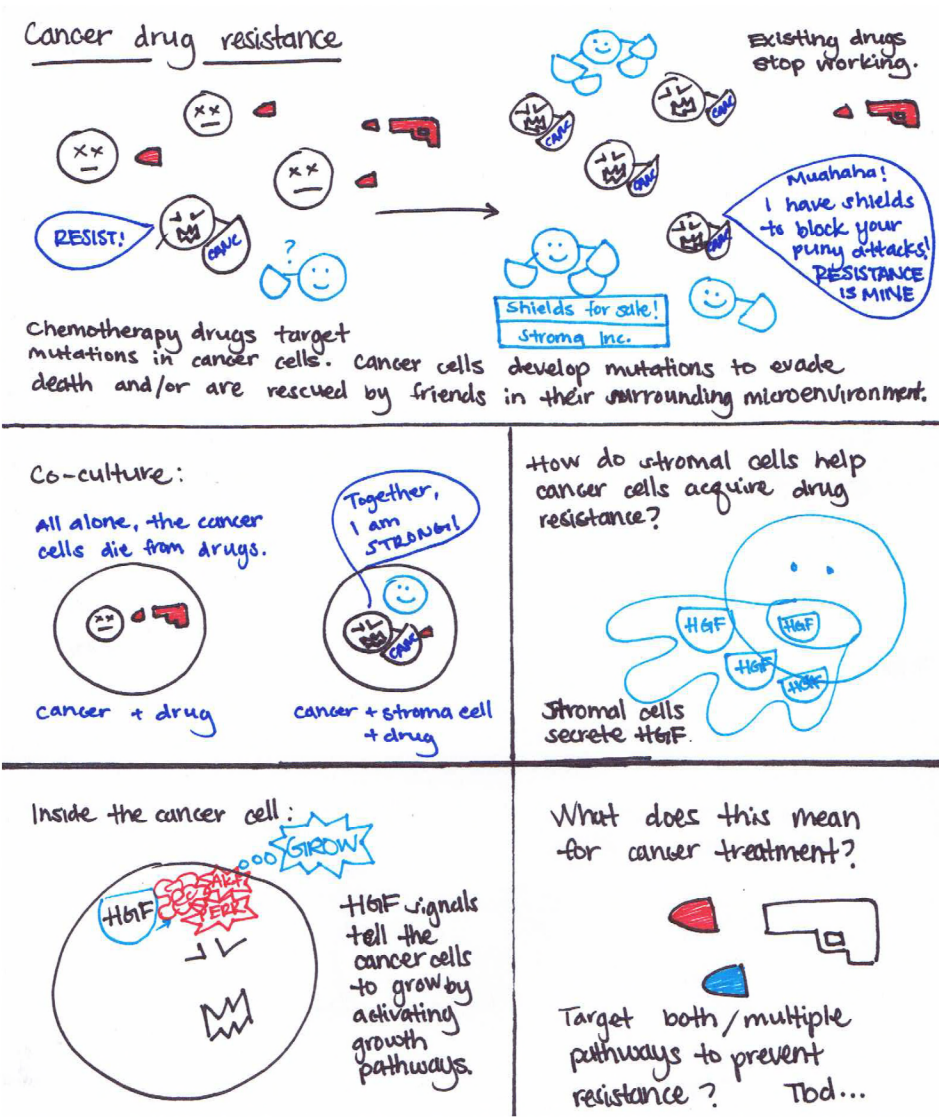 Cancer drug resistance
Existing drugs
stop working.
CANC
CANC
CANC
RESIST!
CANC
?
CANC
Muahaha!
I have shields
to block your
puny attacks!
RESISTANCE
IS MINE
Shields for sale!
Stroma Inc.
Chemotherapy drugs target
mutations in cancer cells. Cancer cells develop mutations to evade
death and/or are rescued by friends in their surrounding microenvironment.
Co-culture:
All alone, the cancer
cells die from drugs.
Together,
I am
STRONG!
CANC
cancer + drug
cancer + stroma cell
+ drug
How do stromal cells help
cancer cells acquire drug
resistance?
HGF
HGF
HGF
HGF
Stromal cells
secrete HGF.
Inside the cancer cell:
GROW
AKT
ERK
HGF
HGF signals
tell the
cancer cells
to grow by
activating
growth
pathways.
What does this mean
for cancer treatment?
Target both/multiple
pathways to prevent
resistance? Tbd...